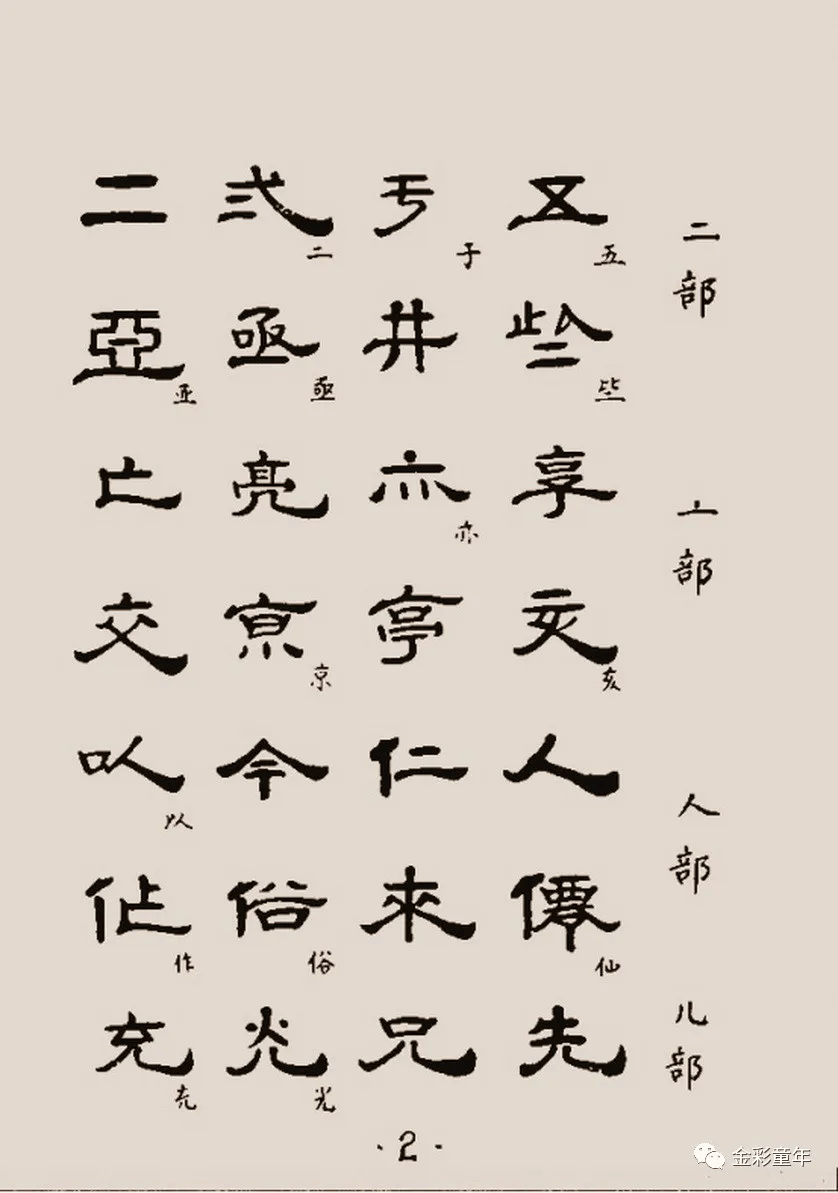 二部
五 亐 弍 二
五 于 二
些 井 亟 亞
些 亟 亚
亠部
享 亦 亮 亡
亦
亥 亭 亰 交
亥 京
人部
人 仁 今 㕥
以
僊 來 俗 作
仙 俗 作
儿部
先 兄 光 充
光 充
·2·
金彩童年